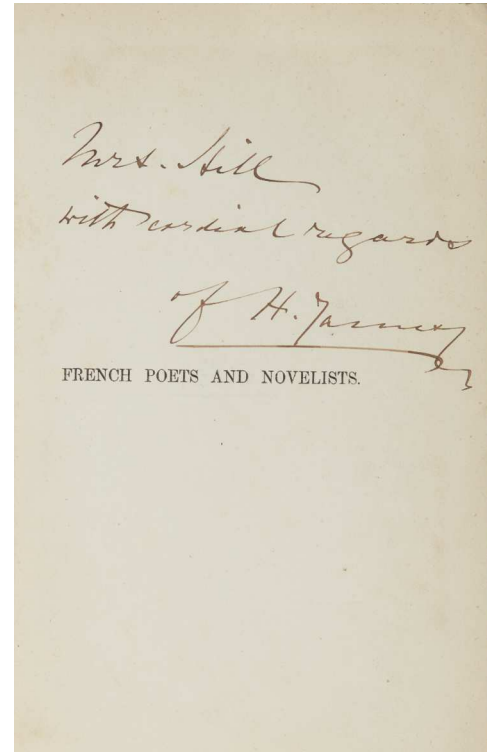 Mrs. Hill
with cordial regards
of H. James Jr
FRENCH POETS AND NOVELISTS.